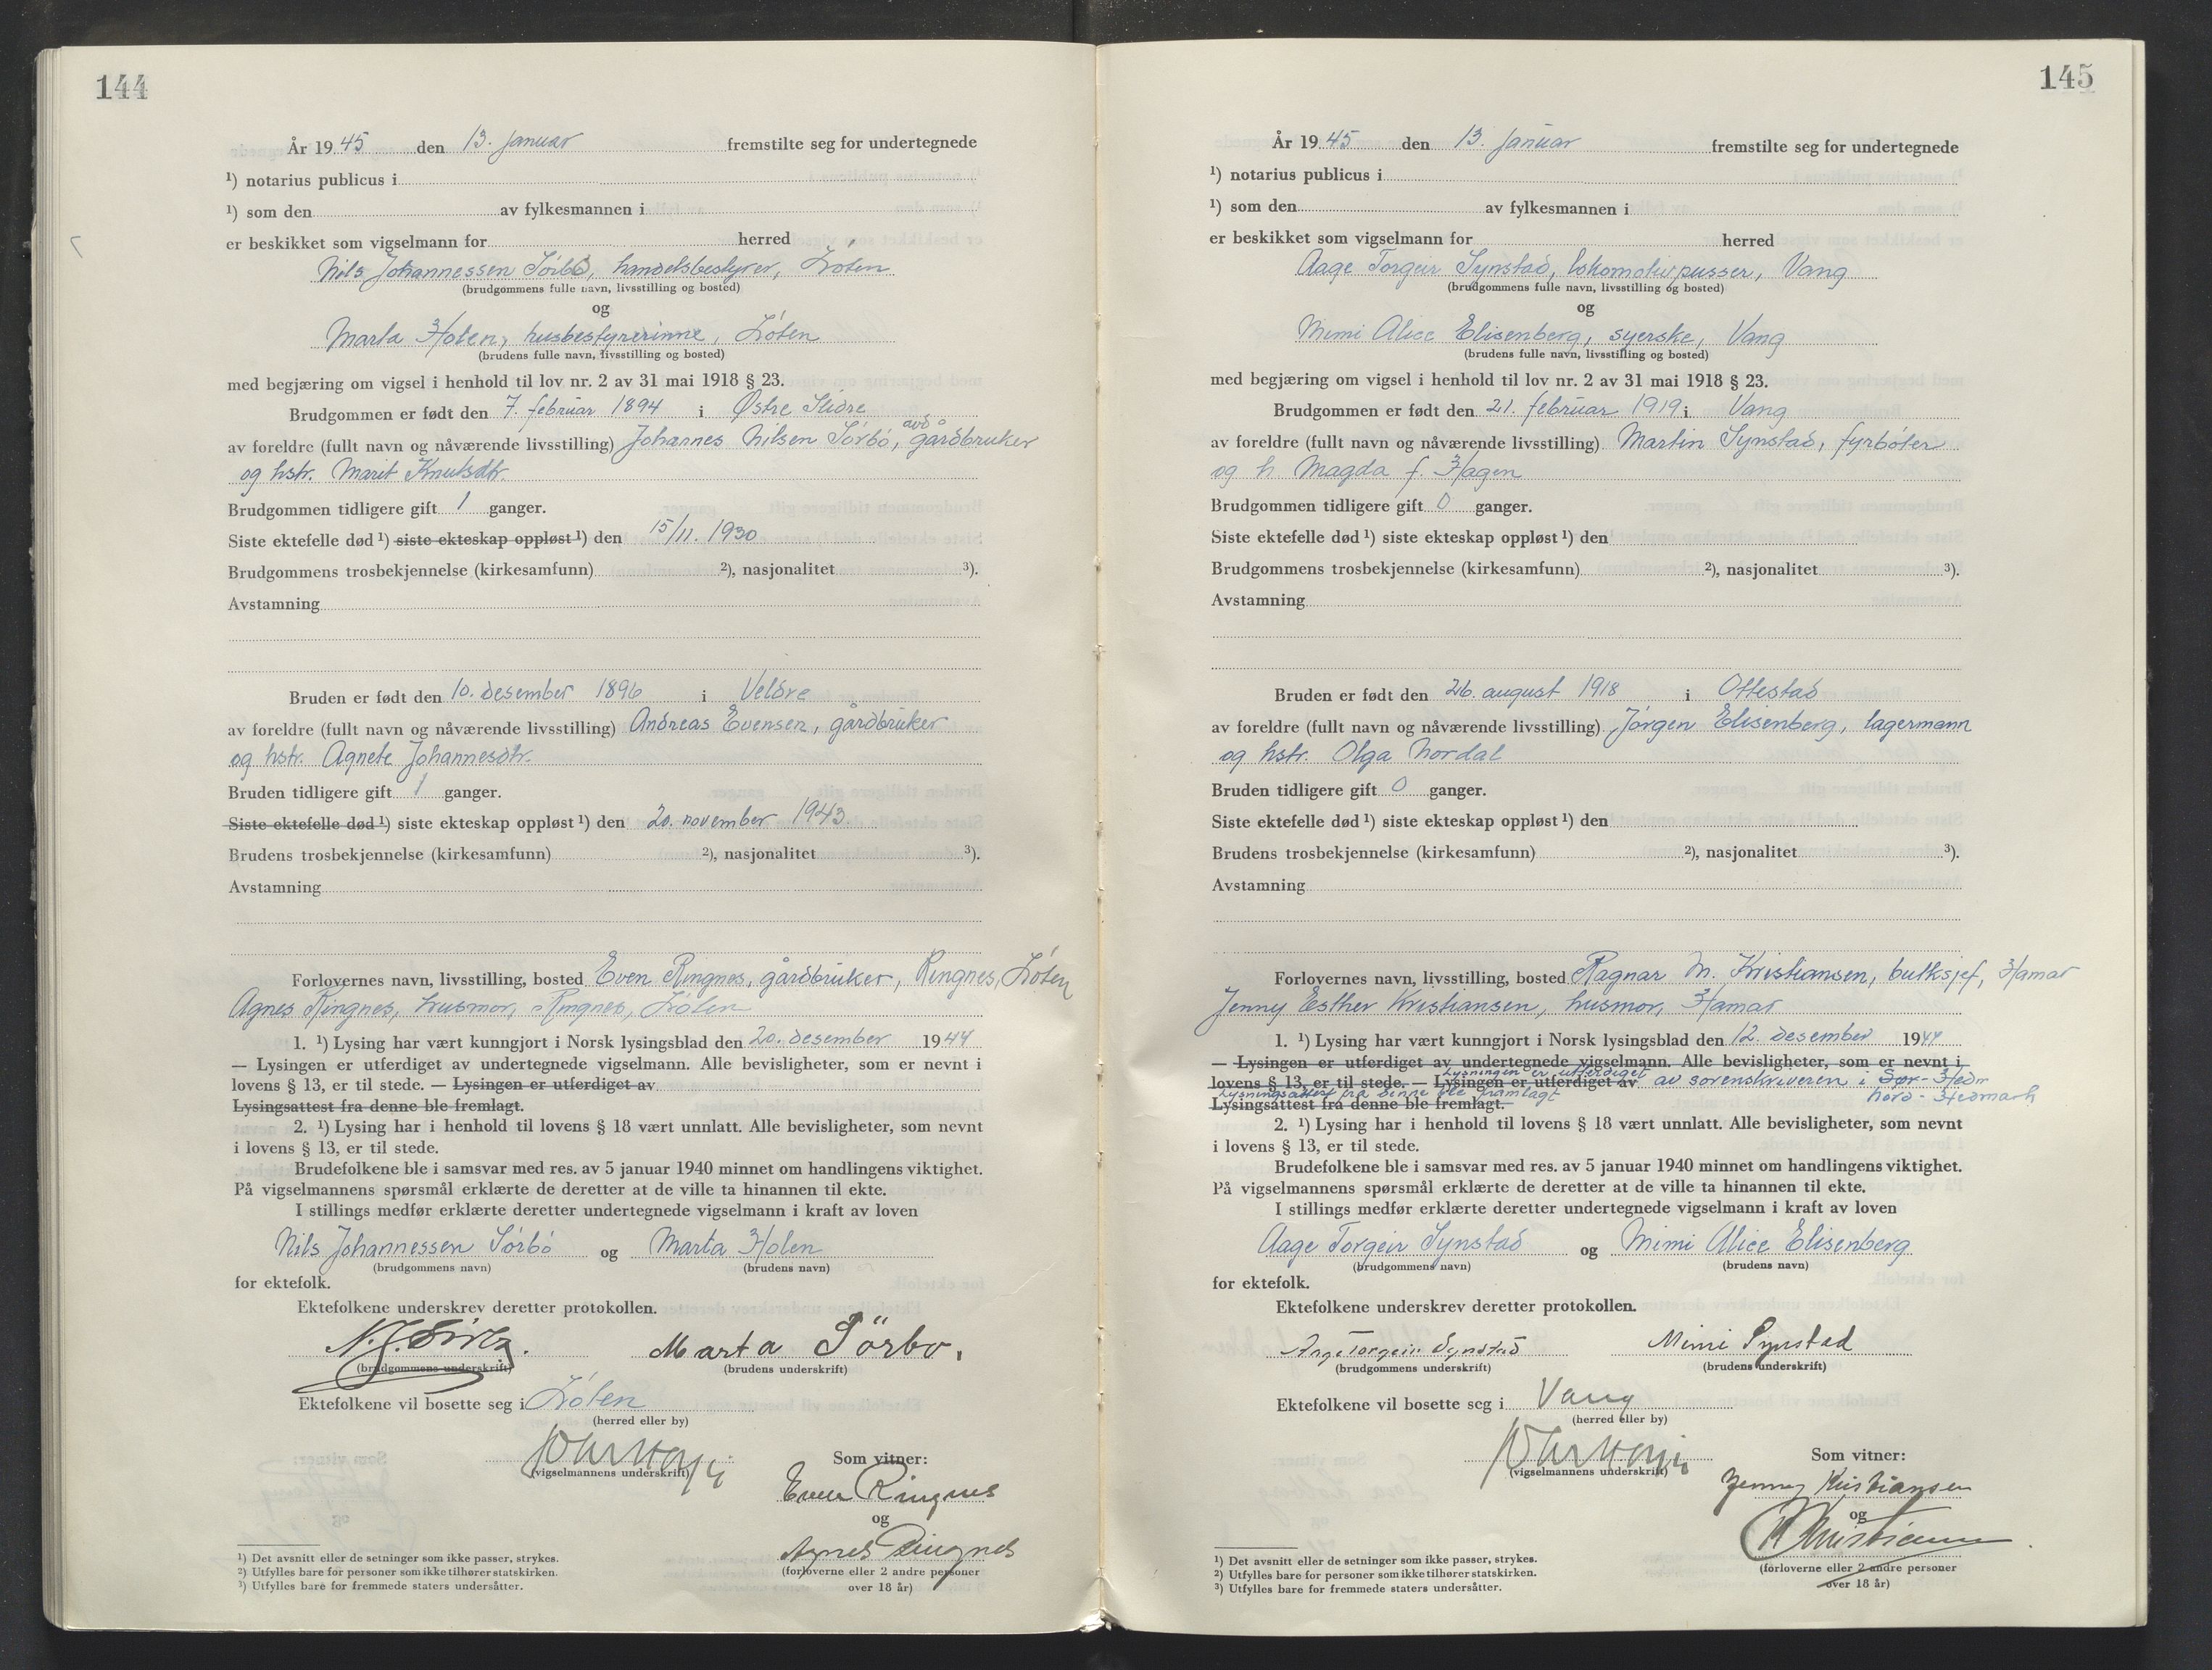 144
År 1945 den 13. januar fremstilte seg for undertegnede
¹) notarius publicus i
¹) som den av fylkesmannen i
er beskikket som vigselmann for herred
Nils Johannessen Sörbö, handelsbestyrer, Löten
(brudgommens fulle navn, livsstilling og bosted)
og
Marta Holen, husbestyrerinne, Löten
(brudens fulle navn, livsstilling og bosted)
med begjæring om vigsel i henhold til lov nr. 2 av 31 mai 1918 § 23.
Brudgommen er født den 7. februar 1894 i Østre Slidre
av foreldre (fullt navn og nåværende livsstilling) Johannes Nilsen Sörbö, avd. gårdbruker
og hstr. Marit Knutsdtr.
Brudgommen tidligere gift 1 ganger.
Siste ektefelle død ¹) siste ekteskap oppløst ¹) den 15/11. 1930
Brudgommens trosbekjennelse (kirkesamfunn) ²), nasjonalitet ³).
Avstamning
Bruden er født den 10. desember 1896 i Veldre
av foreldre (fullt navn og nåværende livsstilling) Andreas Evensen, gårdbruker
og hstr. Agnete Johannesdtr.
Bruden tidligere gift 1 ganger.
Siste ektefelle død ¹) siste ekteskap oppløst ¹) den 20. november 1943.
Brudens trosbekjennelse (kirkesamfunn) ²), nasjonalitet ³).
Avstamning
Forlovernes navn, livsstilling, bosted Even Ringnes, gårdbruker, Ringnes, Löten
Agnes Ringnes, husmor, Ringnes, Löten
1. ¹) Lysing har vært kunngjort i Norsk lysingsblad den 20. desember 1944
— Lysingen er utferdiget av undertegnede vigselmann. Alle bevisligheter, som er nevnt i
lovens § 13, er til stede. — Lysingen er utferdiget av
Lysingsattest fra denne ble fremlagt.
2. ¹) Lysing har i henhold til lovens § 18 vært unnlatt. Alle bevisligheter, som nevnt
i lovens § 13, er til stede.
Brudefolkene ble i samsvar med res. av 5 januar 1940 minnet om handlingens viktighet.
På vigselmannens spørsmål erklærte de deretter at de ville ta hinannen til ekte.
I stillings medfør erklærte deretter undertegnede vigselmann i kraft av loven
Nils Johannessen Sörbö og Marta Holen
(brudgommens navn) (brudens navn)
for ektefolk.
Ektefolkene underskrev deretter protokollen.
N. J. Sörbö. Marta Sörbo.
(brudgommens underskrift) (brudens underskrift)
Ektefolkene vil bosette seg i Löten
(herred eller by)
(vigselmannens underskrift)
Som vitner:
Even Ringnes
og
Agnes Ringnes
(forloverne eller 2 andre personer
over 18 år)
¹) Det avsnitt eller de setninger som ikke passer, strykes.
²) Utfylles bare for personer som ikke tilhører statskirken.
³) Utfylles bare for fremmede staters undersåtter.
145
År 1945 den 13. januar fremstilte seg for undertegnede
¹) notarius publicus i
¹) som den av fylkesmannen i
er beskikket som vigselmann for herred
Aage Torgeir Synstad, lokomotivpusser, Vang
(brudgommens fulle navn, livsstilling og bosted)
og
Mimi Alice Elisenberg, syerske, Vang
(brudens fulle navn, livsstilling og bosted)
med begjæring om vigsel i henhold til lov nr. 2 av 31 mai 1918 § 23.
Brudgommen er født den 21. februar 1919 i Vang
av foreldre (fullt navn og nåværende livsstilling) Martin Synstad, fyrböter
og h. Magda f. Hagen
Brudgommen tidligere gift 0 ganger.
Siste ektefelle død ¹) siste ekteskap oppløst ¹) den
Brudgommens trosbekjennelse (kirkesamfunn) ²), nasjonalitet ³).
Avstamning
Bruden er født den 26. august 1918 i Ottestad
av foreldre (fullt navn og nåværende livsstilling) Jörgen Elisenberg, lagermann
og hstr. Olga Nordal
Bruden tidligere gift 0 ganger.
Siste ektefelle død ¹) siste ekteskap oppløst ¹) den
Brudens trosbekjennelse (kirkesamfunn) ²), nasjonalitet ³).
Avstamning
Forlovernes navn, livsstilling, bosted Ragnar M. Kristiansen, butksjef, Hamar
Jenny Esther Kristiansen, husmor, Hamar
1. ¹) Lysing har vært kunngjort i Norsk lysingsblad den 12. desember 1944
— Lysingen er utferdiget av undertegnede vigselmann. Alle bevisligheter, som er nevnt i
Lysningen er utferdiget
lovens § 13, er til stede. — Lysingen er utferdiget av av sorenskriveren i Sør-Hedm
Lysningsattest fra denne ble framlagt Nord-Hedmark
Lysingsattest fra denne ble fremlagt.
2. ¹) Lysing har i henhold til lovens § 18 vært unnlatt. Alle bevisligheter, som nevnt
i lovens § 13, er til stede.
Brudefolkene ble i samsvar med res. av 5 januar 1940 minnet om handlingens viktighet.
På vigselmannens spørsmål erklærte de deretter at de ville ta hinannen til ekte.
I stillings medfør erklærte deretter undertegnede vigselmann i kraft av loven
Aage Torgeir Synstad og Mimi Alice Elisenberg
(brudgommens navn) (brudens navn)
for ektefolk.
Ektefolkene underskrev deretter protokollen.
Aage Torgeir Synstad Mimi Synstad
(brudgommens underskrift) (brudens underskrift)
Ektefolkene vil bosette seg i Vang
(herred eller by)
(vigselmannens underskrift)
Som vitner:
Jenny Kristiansen
og
R Kristiansen
(forloverne eller 2 andre personer
over 18 år)
¹) Det avsnitt eller de setninger som ikke passer, strykes.
²) Utfylles bare for personer som ikke tilhører statskirken.
³) Utfylles bare for fremmede staters undersåtter.